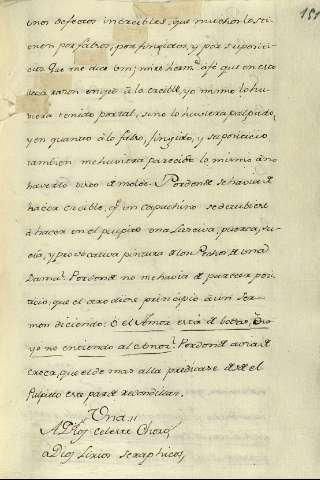 151
unos defectos increibles, que muchos los ti-
enen por falsos, por fingidos, y por suposti-
cios. Que me dice Vm; mas herm.º a fè que en esto
decia razon en qto à lo creible, yo mismo lo hu-
viera tenido por tal, si no lo huviera palpado,
y en quanto à lo falso, fingido, y supositicio
tambien me huviera parecido lo mismo à no
haverlo visto de molde. Por donde se havia de
hacer creible, q.e un capuchino se descubriese
à hacer en el pulpito una lasciva, puerca, su-
cia, y provocativa pintura de los Pechos de una
Dama? Por donde no me havia de parecer pos-
ticio, que el otro diese principio à un Ser-
mon diciendo: ò el Amor està de boeso, ò
yo no entiendo al Amor? Por donde avia de
creer, que el de mas allà predicase desde el
Pulpito este par de redondillas.
Una.,,
A Dios Celeste Choro,
a Dios Lirios Seraphicos,